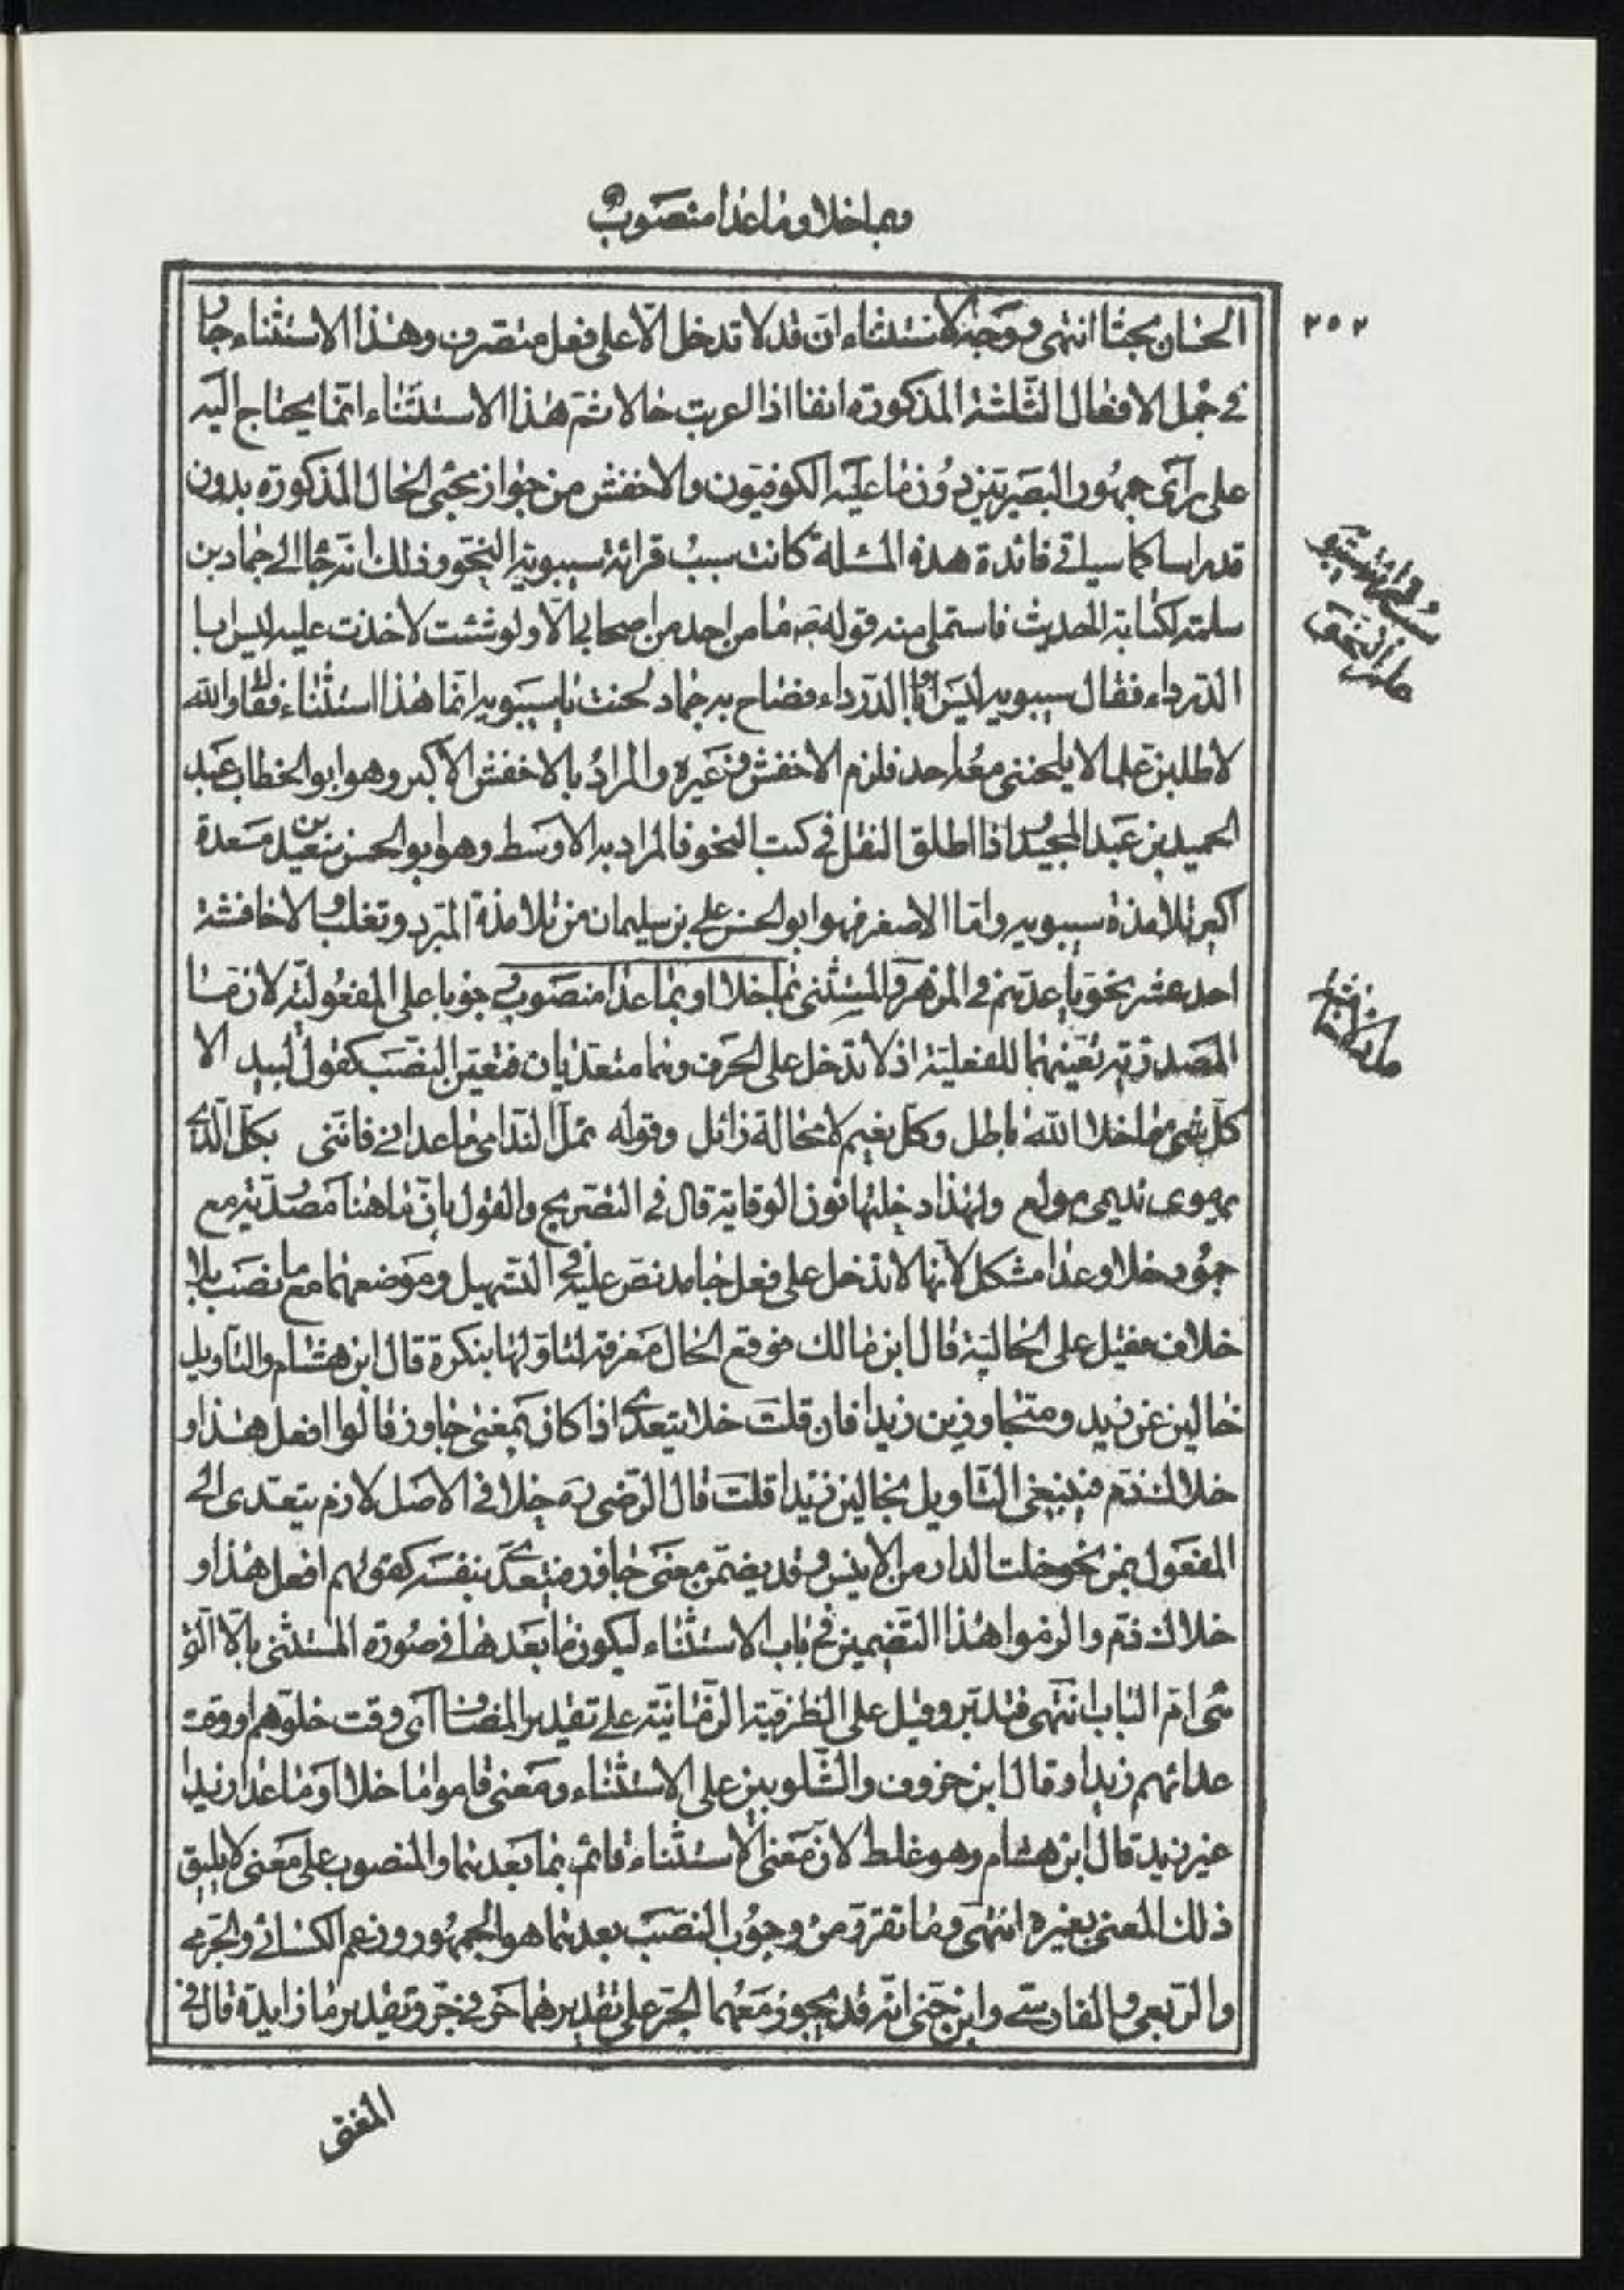 وبما خلا وما عدا منصوب
٢٥٢
الحسان بحثا انتهى ووجه الاستثناء ان قد لا تدخل الّا على فعل متصرف وهذا الاستثناء جار
فى جمل الافعال الثلثة المذكورة انفا اذا اعربت حالا ثم هذا الاستثناء انما يحتاج اليه
على رأى جمهور البصريين دون ما عليه الكوفيون والاخفش من جواز مجئ الحال المذكورة بدون
قد راسا كما سياتى فائدة هذه المسئلة كانت سبب قرائة سيبويه النحو وذلك انه جاء الى حماد بن
سلمة لكتابة الحديث فاستملى منه قوله ص ما من احد من اصحابى الّا ولو شئت لاخذت عليه ليس ابا
الدرداء فقال سيبويه ليس ابو الدرداء فصاح به حماد لحنت يا سيبويه انما هذا استثناء فقال والله
لاطلبن علما لا يلحننى معه احد فلزم الاخفش وغيره والمراد بالاخفش الاكبر وهو ابو الخطاب عبد
الحميد بن عبد المجيد اذا اطلق النقل فى كتب النحو فالمراد به الاوسط وهو ابو الحسن سعيد بن مسعدة
اكبر تلامذة سيبويه واما الاصغر فهو ابو الحسن على بن سليمان من تلامذة المبرد وثعلب والاخافشة
احد عشر نحويا عدّهم فى المزهر والمستثنى بما خلا او بما عدا منصوب وجوبا على المفعولية لان ما
المصدرية تعيّنهما للفعلية اذ لا تدخل على الحرف وهما متعديان فتعين النصب كقول لبيد الا
كل شئ ما خلا الله باطل وكل نعيم لا محالة زائل وقوله تمل الندامى ما عدانى فاننى بكل الذى
يهوى نديمى مولع ولهذا دخلتها نون الوقاية قال فى التصريح والقول بان ما هنا مصدرية مع
جمود خلا وعدا مشكل لانها لا تدخل على فعل جامد نص عليه فى التسهيل وموضعهما مع ما نصب بلا
خلاف فقيل على الحالية قال ابن مالك موقع الحال معرفة لتاولها بنكرة قال ابن هشام والتاويل
خالين عن زيد ومتجاوزين زيدا فان قلت خلا يتعدى اذا كان بمعنى جاوز قالوا افعل هذا و
خلاك ذم فينبغى التاويل بخالين زيدا قلت قال الرضى ره خلا فى الاصل لازم يتعدى الى
المفعول بمن نحو خلت الدار من الانيس وقد يضمن معنى جاوز فيتعدى بنفسه كقولهم افعل هذا و
خلاك ذم والزموا هذا التضمين فى باب الاستثناء ليكون ما بعدها فى صورة المستثنى بالّا التى
هى ام الباب انتهى فتدبر وقيل على الظرفية الزمانية على تقدير المضاف اى وقت خلوهم او وقت
عدائهم زيدا وقال ابن خروف والشلوبين على الاستثناء ومعنى قاموا ما خلا او ما عدا زيدا
غير زيد قال ابن هشام وهو غلط لان معنى الاستثناء قائم بما بعدهما والمنصوب على معنى لا يليق
ذلك المعنى بغيره انتهى وما تقرر من وجوب النصب بعدهما هو الجمهور وزعم الكسائى والجرمى
والربعى والفارسى وابن جنى انه قد يجوز معهما الجر على تقديرهما حرفى جر وتقدير ما زايدة قال فى
المغنى